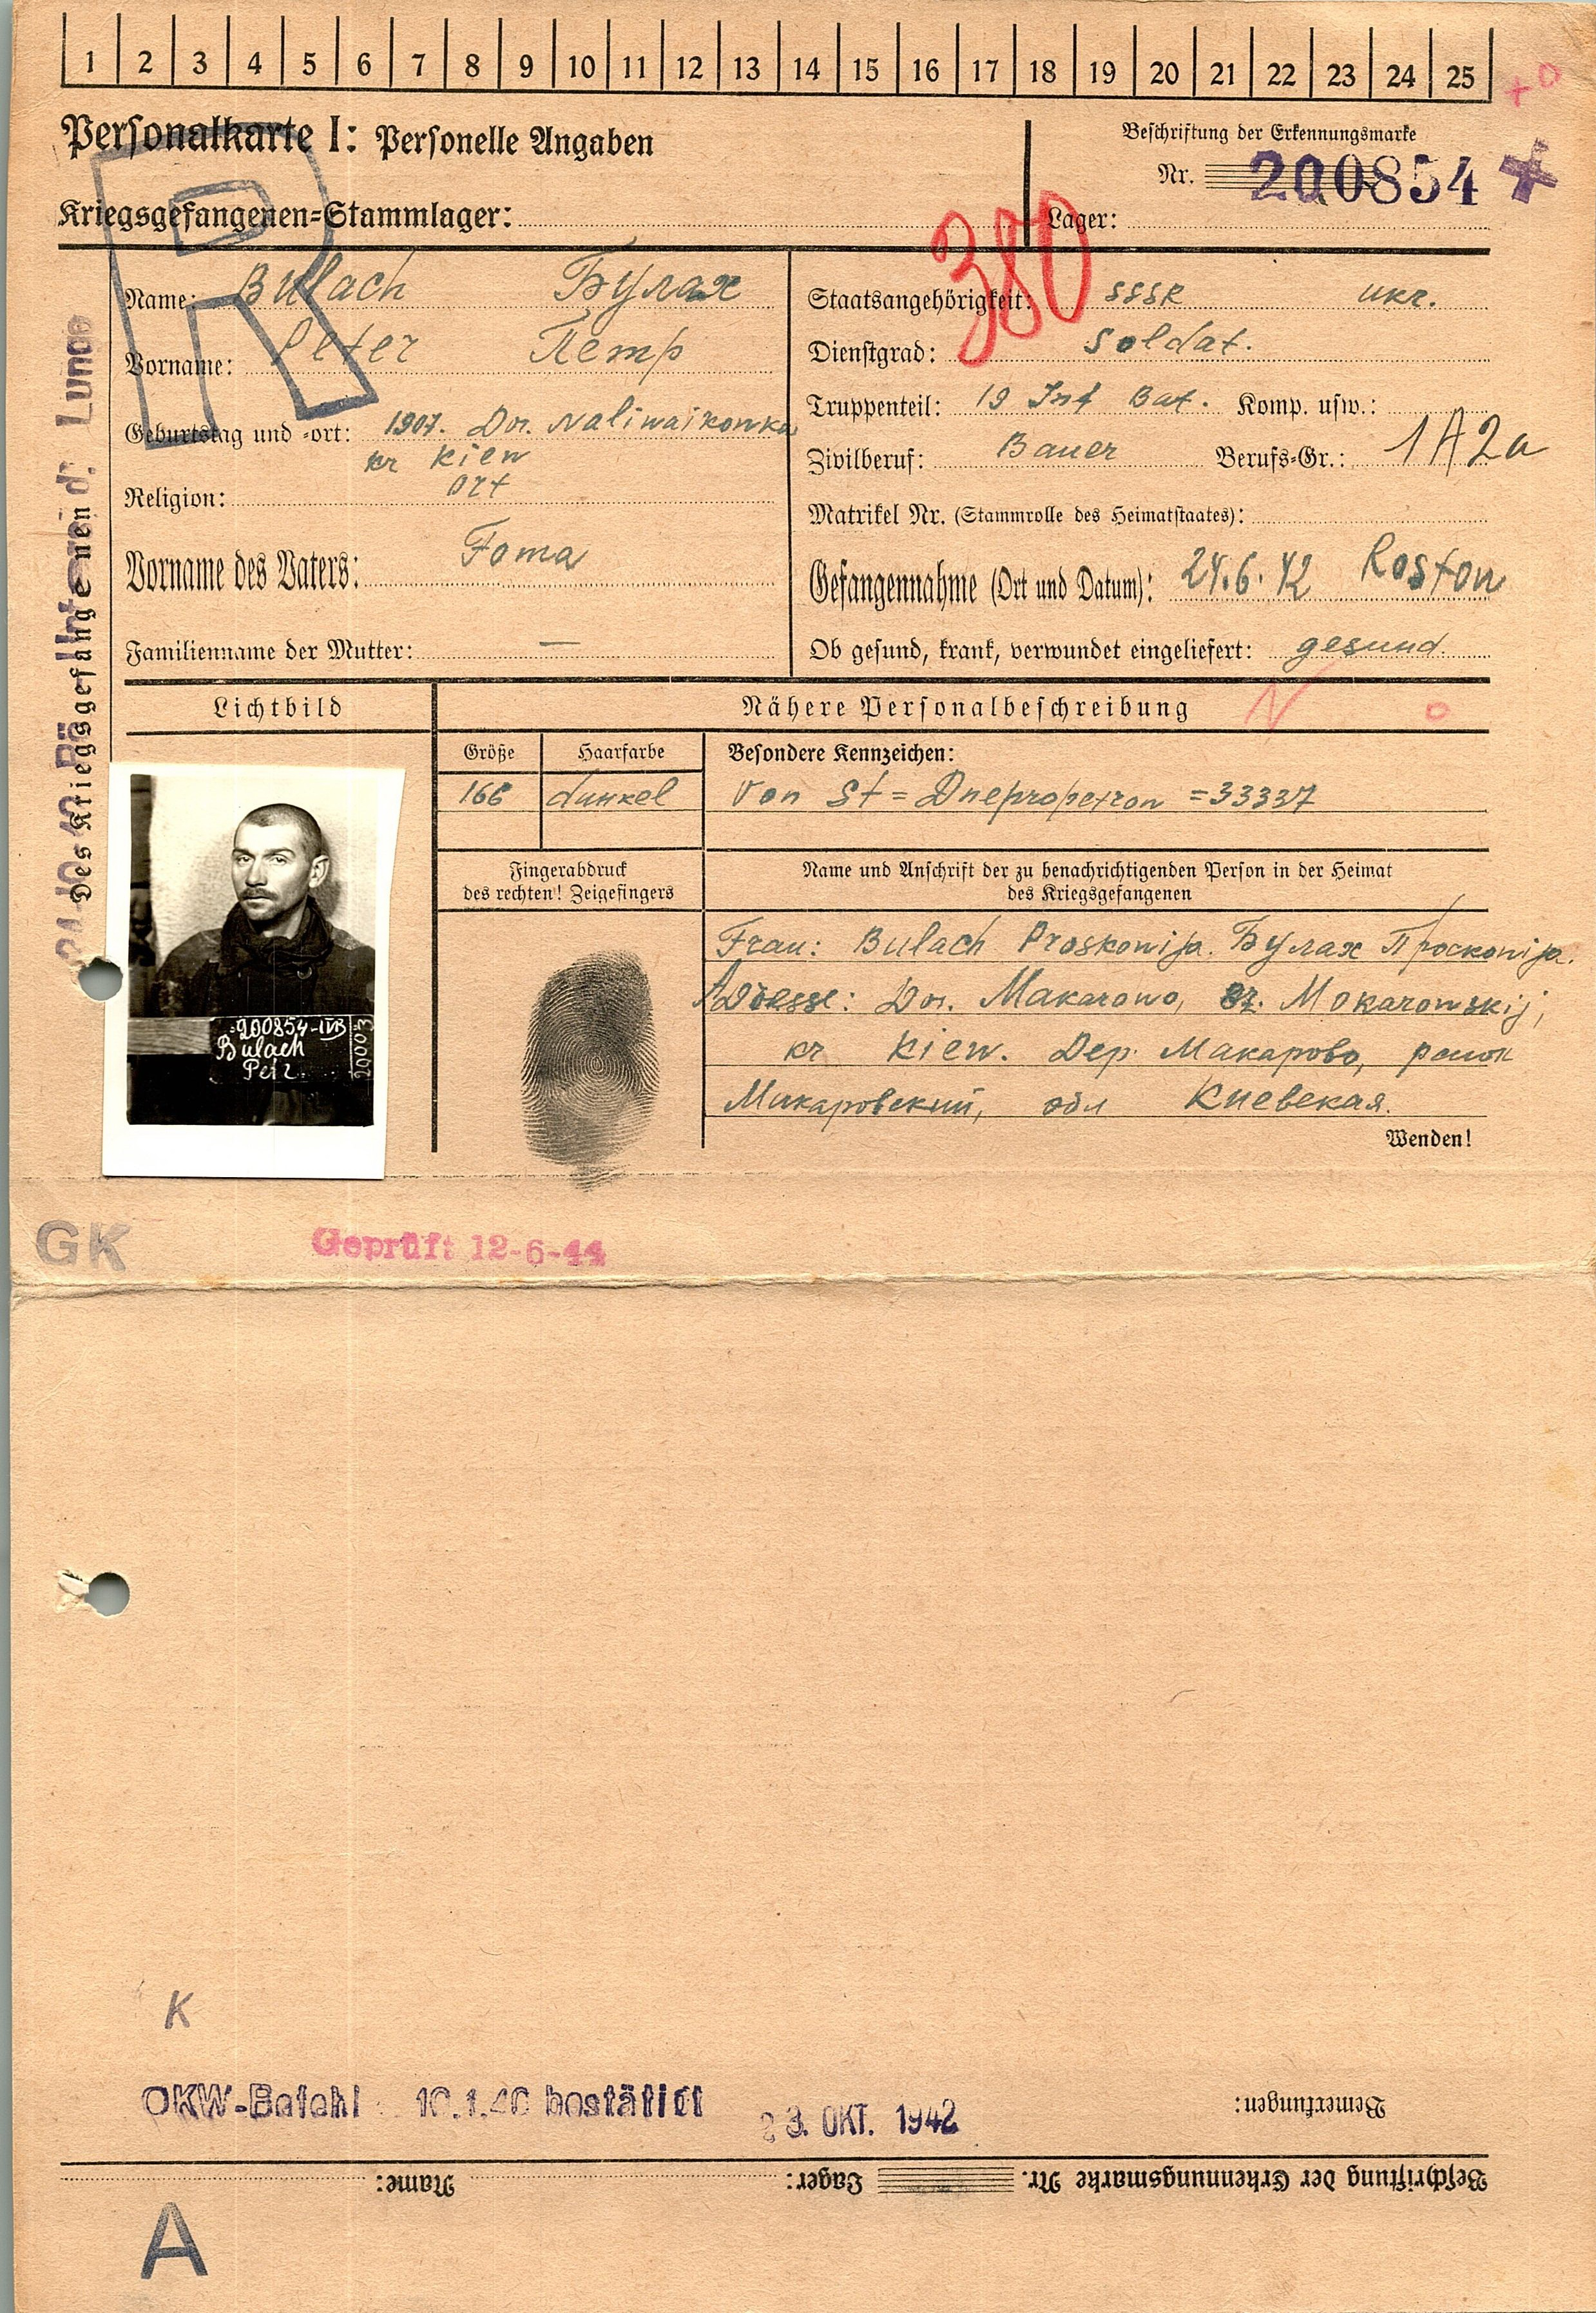 1 2 3 4 5 6 7 8 9 10 11 12 13 14 15 16 17 18 19 20 21 22 23 24 25
+ 0
Personalkarte I: Personelle Angaben
Beschriftung der Erkennungsmarke
Nr. 200854
Kriegsgefangenen=Stammlager:
Lager:
R
380
Name: Bulach Булах
Vorname: Peter Петр
Geburtstag und =ort: 1907. Dor. Naliwaikowka
kr Kiew
Religion: ort
Vorname des Vaters: Foma
Familienname der Mutter: —
Staatsangehörigkeit: SSSR ukr.
Dienstgrad: Soldat.
Truppenteil: 19 Inf Bat. Komp. usw.:
Zivilberuf: Bauer Berufs=Gr.: 1A2a
Matrikel Nr. (Stammrolle des Heimatstaates):
Gefangennahme (Ort und Datum): 24.6.42 Rostow
Ob gesund, krank, verwundet eingeliefert: gesund.
Des Kriegsgefangenen
Lichtbild
Nähere Personalbeschreibung
Größe
Haarfarbe
Besondere Kennzeichen:
166
dunkel
Von St = Dnepropetrow = 33337
Fingerabdruck
des rechten! Zeigefingers
Name und Anschrift der zu benachrichtigenden Person in der Heimat
des Kriegsgefangenen
Frau: Bulach Proskowija. Булах Просковija.
Adresse: Dor. Makarowo, Mokarowskij,
kr Kiew. Дер. Макарово, район
Макаровский, обл Киевская.
Wenden!
200854-IVB
Bulach
Petr.
20003
GK
Geprüft 12-6-44
K
OKW-Befehl 10.1.40 bestätigt
23. OKT. 1942
Bemerkungen:
Beschriftung der Erkennungsmarke Nr. Lager: Name:
A